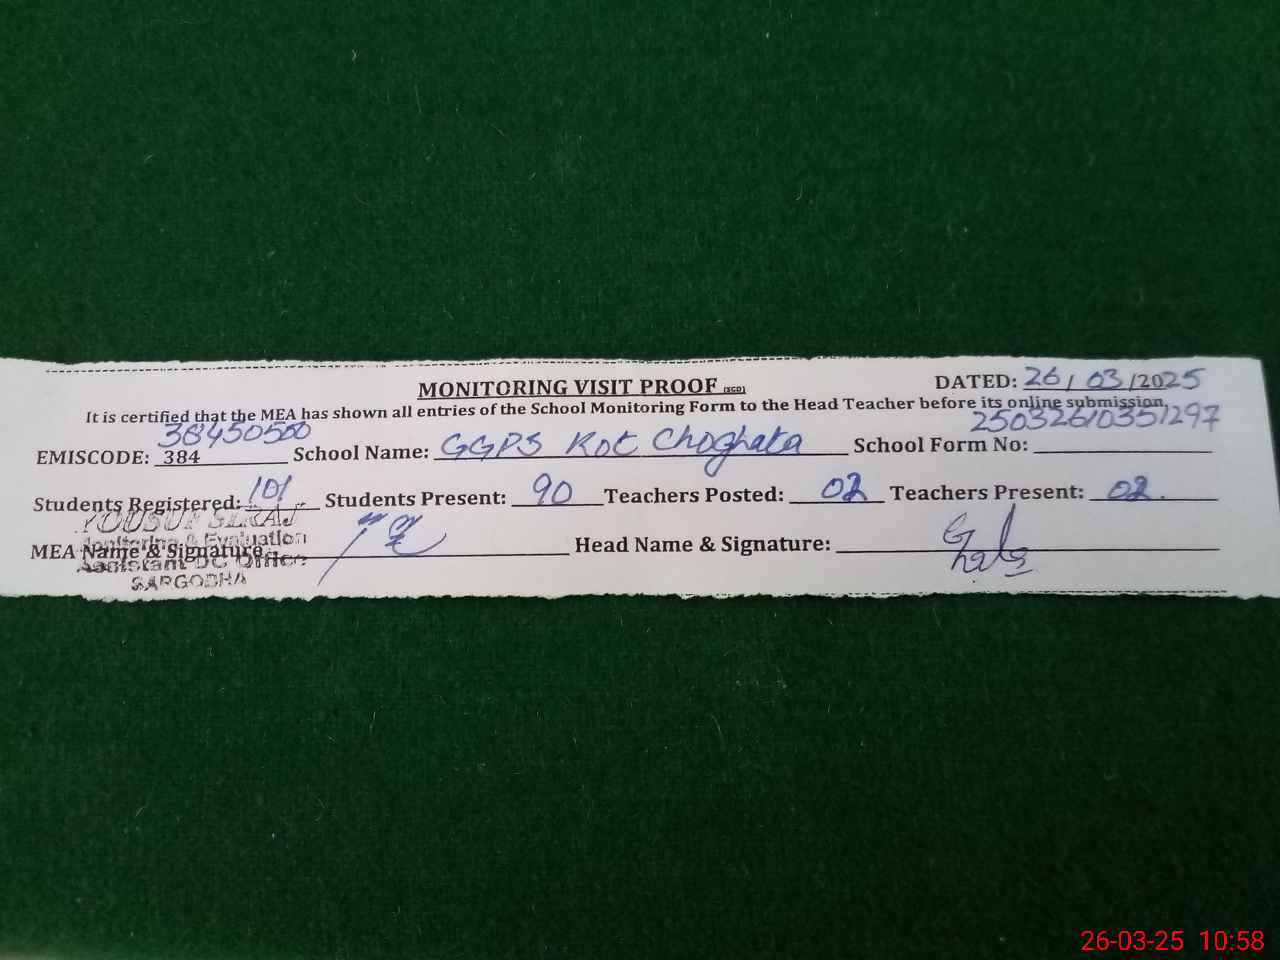 MONITORING VISIT PROOF (SGD) DATED: 26/03/2025
It is certified that the MEA has shown all entries of the School Monitoring Form to the Head Teacher before its online submission.
38450500 25032610351297
EMISCODE: 384 School Name: GGPS Kot Choghata School Form No:
Students Registered: 101 Students Present: 90 Teachers Posted: 02 Teachers Present: 02.
YOUSUF SIRAJ
Monitoring & Evaluation
MEA Name & Signature: Head Name & Signature:
Assistant DC Office
SARGODHA
26-03-25 10:58